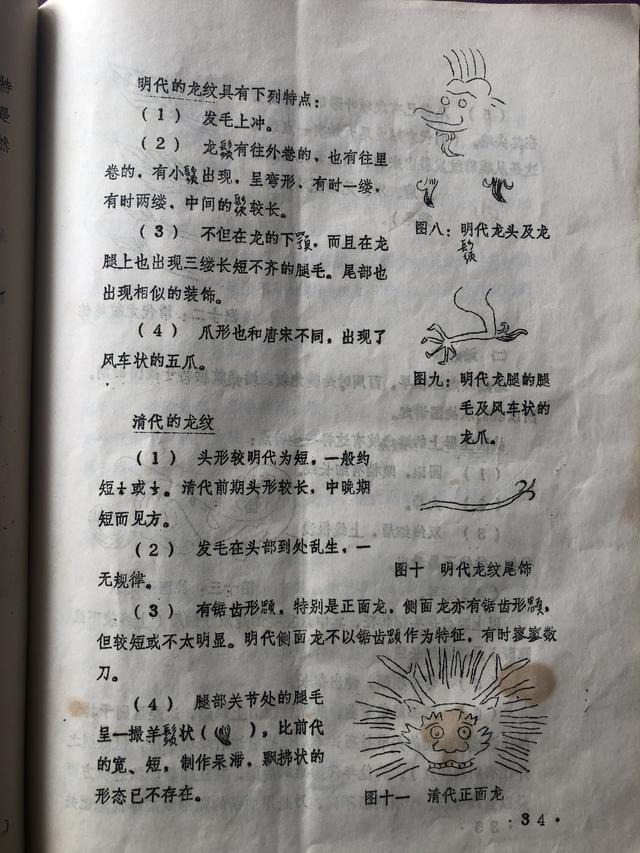 明代的龙纹具有下列特点：
（1） 发毛上冲。
（2） 龙鬚有往外卷的，也有往里
卷的，有小鬚出现，呈弯形，有时一缕，
有时两缕，中间的鬚较长。
图八：明代龙头及龙
鬚
（3） 不但在龙的下颚，而且在龙
腿上也出现三缕长短不齐的腿毛。尾部也
出现相似的装饰。
（4） 爪形也和唐宋不同，出现了
风车状的五爪。
图九：明代龙腿的腿
毛及风车状的
龙爪。
清代的龙纹
（1） 头形较明代为短，一般约
短 或 。清代前期头形较长，中晚期
短而见方。
（2） 发毛在头部到处乱生，一
无规律。
图十 明代龙纹尾饰
（3） 有锯齿形 ，特别是正面龙，侧面龙亦有锯齿形 ，
但较短或不太明显。明代侧面龙不以锯齿 作为特征，有时寥寥数
刀。
（4） 腿部关节处的腿毛
呈一撮羊鬚状（ ），比前代
的宽、短，制作呆滞，飘拂状的
形态已不存在。
图十一 清代正面龙
·34·
特
是
然